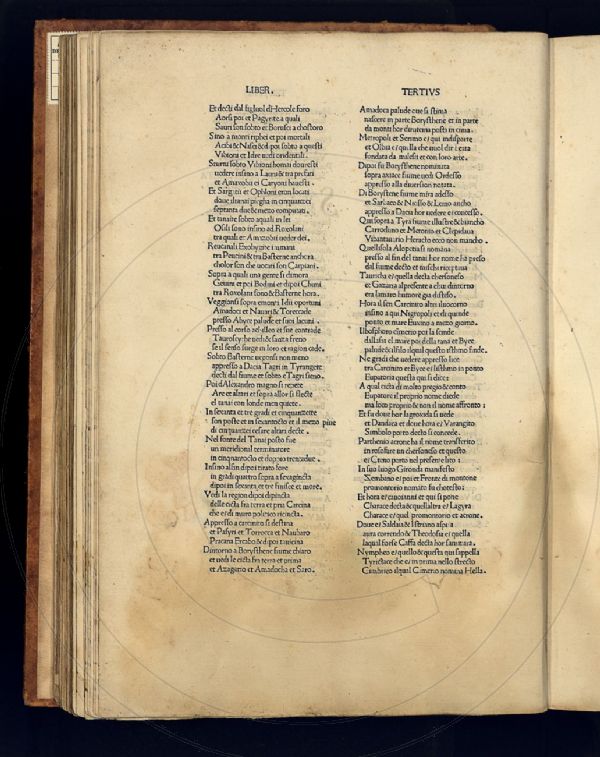 LIBER.
Et decti dal figluol dHercole foro
Aorsi poi et Pagyrite a quali
Sauri son sobto et Borusci a chostoro
Sino a monti riphei et poi mortali
Aciba & Nasci & di poi sobto a questi
Vibioni et Idre uedi
Sturni sobto Vibioni homai
uedere insino a Lauri & tra prefati
et Amaxobii et Caryoni
Et Sargati et Ophloni eron locati
doue piegha in cinquantzei
septanta due & mezo computati.
Et tanaite sobto a quali in lei
Osili sono insino ad Roxolani
tra quali et Amaxobii ueder dei.
Reucanali Exobygite
tra Peucini & tra Basterne anchora
choloro son che uocati son Carpiani.
Sopra a quali una gente si dimora
Geuini et poi Bodini et dipoi Chuni
tra Roxolani sono & Basterne hora.
Veggionsi sopra a monti Idii oportuni
Amadoci et Nauari & Torecade
presso Abyce palude et suoi lacuni.
Presso al corso achilleo et sue contrade
Tauroscythe uedi & sanza freno
se il senso surge in loro et ragion cade.
Sobto Basterne uegonsi non meno
appresso a Dacia Tagri in Tyrangete
decti dal fiume et sobto e Tagri sieno.
Poi dAlexandro magno si repete
Are et altari et sopra allor si flecte
el tanai con londe men quiete.
In sexanta et tre gradi et cinquanzette
son poste et in sexantocto et il mezo piue
di cinquanzei cesare altari decte.
Nel fonte del Tanai posto fue
un meridional terminatore
in cinquantocto et doppio trentadue.
Insino al fin di poi tirato fore
in gradi quattro sopra a sexagincta
di poi in sexanta et tre finisce et more.
Vedi la region di poi dipincta
delle cicta fra terra et pria Carcina
che e di muro pulitico ricincta.
Appresso a carcinito si destina
et Pasyri et Torrocca et Naubaro
Pracana Ercabo & di poi tauricina
Dintorno a Borysthene fiume chiaro
et uedi le cicta fra terra et prima
et Azagario et Amadocha et Saro.
TERTIVS
Amadoca palude que si stima
nascere in parte Borysthene et in parte
da monti hor duratena posti in cima.
Metropoli et Serimo e qui indisparte
et Olbia e quella che uuol dir beata
fondata da milesii et con loro arte.
Dipoi su Borysthene nominata
sopra axiace fiume uedi Ordesso
appresso alla diuersion notata.
Di Borysthene fiume mira adesso
et Sarbaco & Niosso & Leino ancho
appresso a Dacia hor uedere e concesso.
Qui sopra a Tyra fiume illustre & biancho
Carrodino et Metonio et Clepidaua
Vibantauario Heracto ecco non mancho.
Quellisola Alopetia si nomaua
presso al fin del tanai hor nome ha preso
dal fiume decto et
Taurica e quella decta chersoneso
e Gazaria al presente a chui dintorno
era lamaro humore gia disteso.
Hora il sen Carcinito altri ilnocorno
insino a qui Nagropoli et di quinde
ponto et mare Euxino a mezo giorno.
Il bosphoro cimerio poi la fende
dallaltri el mare poi della tana et Byce
palude & il filo ilqual questo isthmo fende.
Ne gradi che uedere appresso lice
tra Carcinito et Byce e listhmo in ponto
Eupatoria questa qui si dice:
A qual cicta di molto pregio & conto
Eupatore al proprio nome diede
ma loro proprio & non il nome affronto:
Et su doue hor la giouida si uede
et Dandaca et doue hora e Varangito
Simbolo porto decto si concede.
Parthenio acrone ha il nome transferito
in rosofare un chersoneso et questo
e Creno porto nel presente lito:
In suo luogo Gironda manifesto
Zembano e poi et Fronte di montone
promontorio nomato su chotesto:
Et hora e qui et qui si pone
Charace decta & quellaltra e Lagyra
Charace e qual promontorio et acrone.
Doue e Saldaia & Istriano aspira
aura correndo & Theodosia e quella
laqual forse Caffa decta hor
Nympheo e quello & questa qui sappella
Tyrictace che e in prima nello strecto
Cimbrico al qual Cimerio nomina Hella.